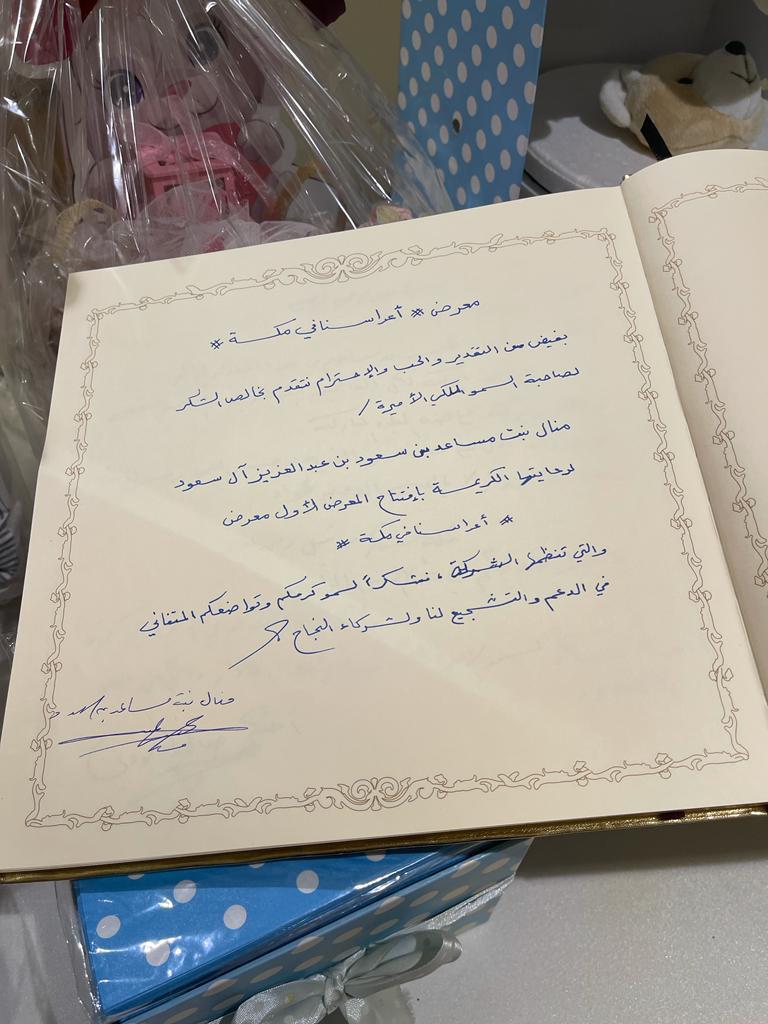 معرض # أعراسنا في مكة #
بفيض من التقدير والحب والإحترام نتقدم بخالص الشكر
لصاحبة السمو الملكي الأميرة /
منال بنت مساعد بن سعود بن عبدالعزيز آل سعود
لرعايتها الكريمة بإفتتاح المعرض الأول معرض
# أعراسنا في مكة #
والتي تنظمها الشركة ، نشكراً لسمو كرمكم وتواضعكم المتفاني
في الدعم والتشجيع لنا ولشركاء النجاح
منال بنت مساعد بن سعود